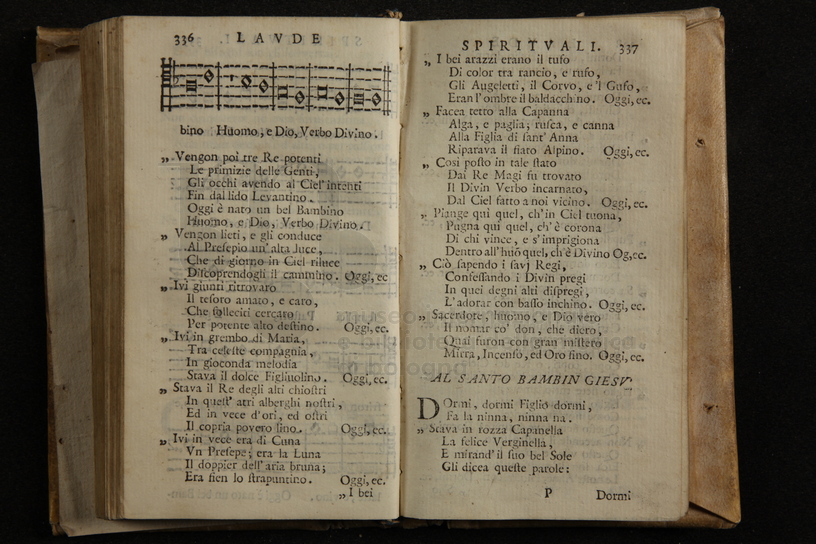 336 LAVDE
bino Huomo, e Dio, Verbo Divino.
„ Vengon poi tre Re potenti
Le primizie delle Genti,
Gli occhi avendo al Ciel' intenti
Fin dal lido Levantino.
Oggi è nato un bel Bambino
Huomo, e Dio, Verbo Divino.
„ Vengon lieti, e gli conduce
Al Presepio un' alta luce,
Che di giorno in Ciel riluce
Discoprendogli il cammino. Oggi, ec
„ Ivi giunti ritrovaro
Il tesoro amato, e caro,
Che solleciti cercaro
Per potente alto destino. Oggi, ec.
„ Ivi in grembo di Maria,
Tra celeste compagnia,
In gioconda melodia
Stava il dolce Figliuolino. Oggi, ec.
„ Stava il Re degli alti chiostri
In quest' atri alberghi nostri,
Ed in vece d'ori, ed ostri
Il copria povero lino. Oggi, ec.
„ Ivi in vece era di Cuna
Vn Presepe; era la Luna
Il doppier dell' aria bruna;
Era fien lo strapuntino. Oggi, ec.
„ I bei
SPIRITVALI. 337
„ I bei arazzi erano il tufo
Di color tra rancio, e rufo,
Gli Augeletti, il Corvo, e 'l Gufo,
Eran l' ombre il baldacchino. Oggi, ec.
„ Facea tetto alla Capanna
Alga, e paglia; rusca, e canna
Alla Figlia di sant' Anna
Riparava il fiato Alpino. Oggi, ec.
„ Così posto in tale stato
Dai Re Magi fu trovato
Il Divin Verbo incarnato,
Dal Ciel fatto a noi vicino. Oggi, ec.
„ Piange qui quel, ch'in Ciel tuona,
Pugna qui quel, ch' è corona
Di chi vince, e s'imprigiona
Dentro all' huō quel, ch'è Divino Og,ec.
„ Ciò sapendo i savj Regi,
Confessando i Divin pregi
In quei degni alti dispregi,
L'adorar con basso inchino. Oggi, ec.
„ Sacerdote, huomo, e Dio vero
Il mostrar co' don, che diero,
Quai furon con gran mistero
Mirra, Incenso, ed Oro fino. Oggi, ec.
AL SANTO BAMBIN GIESV'
Dormi, dormi Figlio dormi,
Fa la ninna, ninna na.
„ Stava in rozza Capanella
La felice Verginella,
E mirand' il suo bel Sole
Gli dicea queste parole:
P Dormi